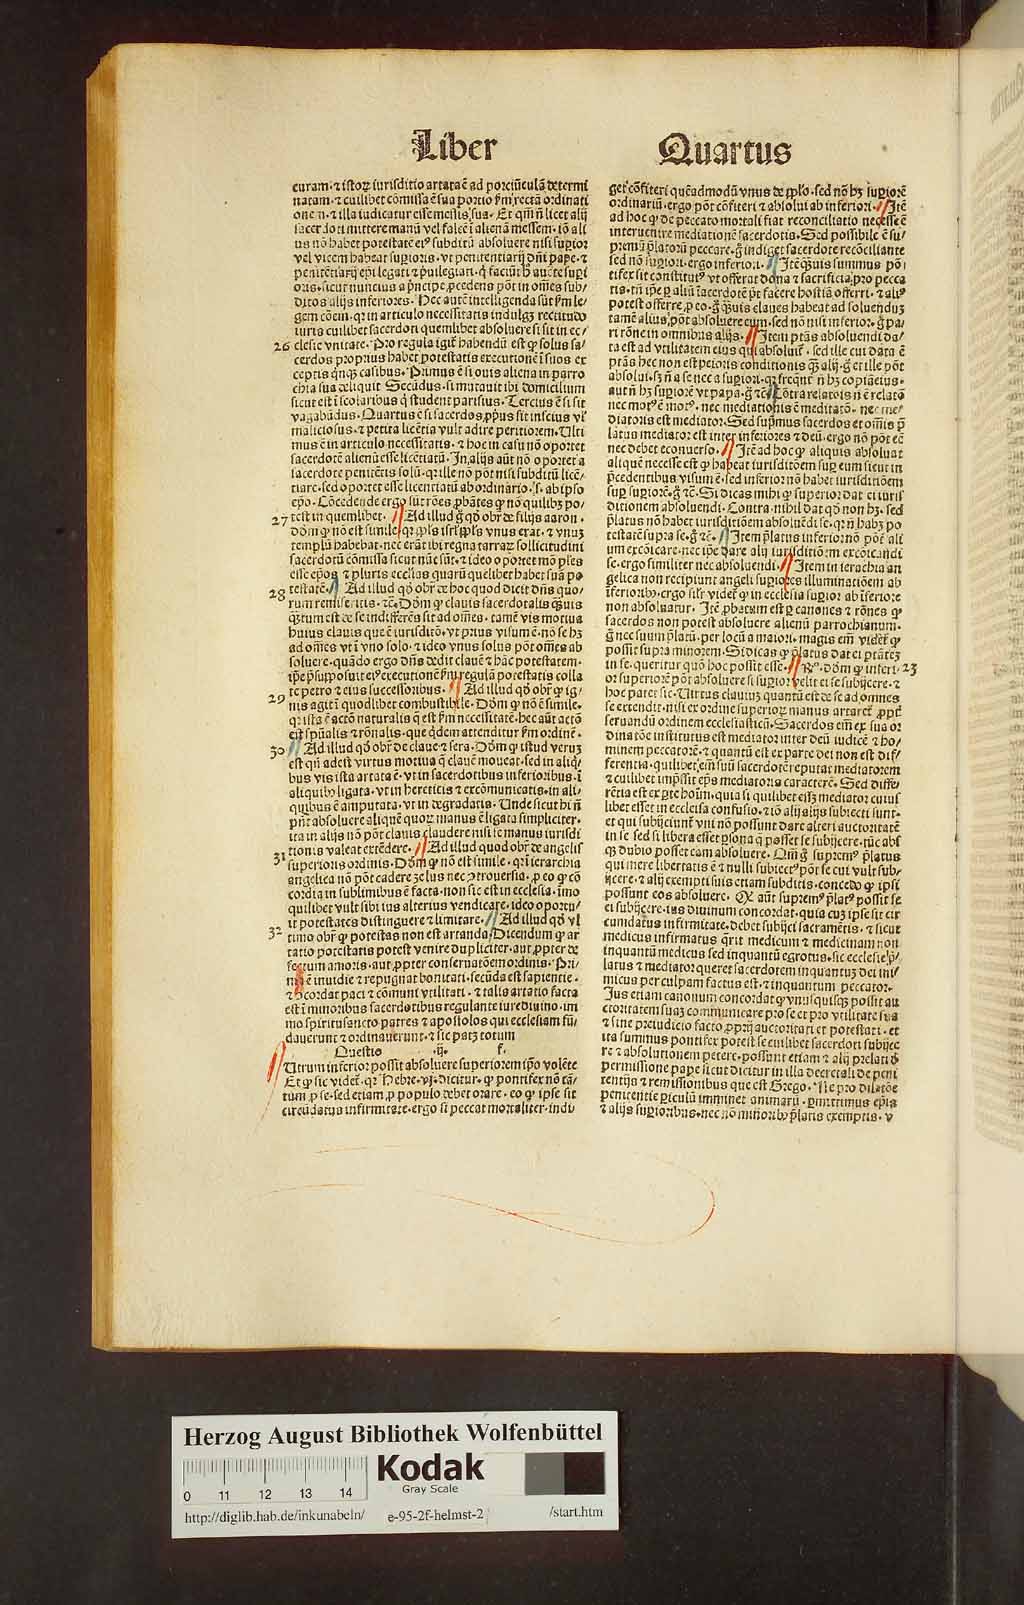 Liber
Quartus
curam · ⁊ istoꝝ iurisditio artata ē ad porciūculā determi
natam · ⁊ cuilibet cōmissa ē sua portio ẜm rectā ordinati
onē · ⁊ illa iudicatur esse messis sua · Et qm̄ nō licet alij
sacerdoti mittere manū vel falcē ī alienā messem · iō ali
us nō habet potestatē eiꝰ subditū absoluere nisi suꝑior
vel vicem habeat suꝑioris · vt penitentiarij dn̄i pape · ⁊
penitētiarij epī legati ⁊ p̄uilegiati · q̄ faciūt h̄ auctē suꝑi
oris · sicut nuncius a prīncipe ꝓcedens pōt in om̄es sub/
ditos alijs inferiores · Hec autē intelligenda sūt ẜm le/
gem cōem · qꝛ in articulo necessitatis indulgꝫ rectitudo
iuris cuilibet sacerdoti quemlibet absoluere si sit in ec/
26 clesie vnitate · Pro regula igiꞇ habendū est ꝙ solus sa/
cerdos proprius habet potestatis executionē ī suos ex
ceptis qnqꝫ casibus · Primus ē si ouis aliena in parro
chia sua deliquit Secūdus · si mutauit ibi domicilium
sicut est ī scolaribus q̄ student parisius · Tercius ē si sit
vagabūdus · Quartus ē si sacerdos ꝓpꝛius sit inscius vl
maliciosus · ⁊ petita licētia vult adire peritiorem · Ulti
mus ē in articulo necessitatis · ⁊ hoc in casu nō oportet
sacerdotē alienū esse licētiatū · In alijs aūt nō oportet a
sacerdote penitētis solū · qꝛ ille nō pōt nisi subditū licē/
tiare · sed oportet esse licentiatū ab ordinario · s · ab ipso
epō · Cōcedende ergo sūt rōes ꝓbātes ꝙ nō quilibꝫ po/
27 test in quemlibet · Ad illud ḡ qd̄ obr̄ de filijs aaron ·
dōm ꝙ nō est simile qꝛ ppls isrl ppls vnus erat · ⁊ vnuꝫ
templū habebat · nec erāt ibi regna tarraꝝ sollicitudini
sacerdotū cōmissa sicut nūc sūt · ⁊ ideo oportet mō ples
esse epōs ⁊ pluris ecclias quarū quelibet habet suā po
28 testatē · Ad illud qd̄ obr̄ de hoc quod dicit dn̄s quo/
rum remiseritis · ⁊c · Dōm ꝙ clauis sacerdotalis quis
qꝫtum est de se indifferēs sit ad om̄es · tamē vis motiua
huius clauis que ē iurisditō · vt prius visum ē · nō se hꝫ
ad om̄es vt ī vno solo · ⁊ ideo vnus solus pōt om̄es ab
soluere · quādo ergo dn̄s dedit clauē ⁊ hāc potestatem ·
ipe p̄supposuit eiꝰ executionē ẜm regulā potestatis colla
te petro ⁊ eius successoribus · Ad illud qd̄ obr̄ ꝙ ig/
29 nis agit ī quodlibet combustibile · Dōm ꝙ nō ē simile ·
qꝛ ista ē actō naturalis q̄ est ẜm necessitatē · hec aūt actō
est spūalis ⁊ rōnalis · que qd̄em attenditur ẜm ordinē ·
30 Ad illud qd̄ obr̄ de claue ⁊ sera · Dōm ꝙ istud veruꝫ
est qn̄ adest virtus motiua q̄ clauē moueat · sed in aliqͥ/
bus vis ista artata ē · vt in sacerdotibus inferioribus · ī
aliquibꝰ ligata · vt in hereticis ⁊ excōmunicatis · in ali/
quibus ē amputata · vt in degradatis · Unde sicut hi nō
pn̄t absoluere aliquē quoꝝ manus ē ligata simpliciter ·
ita in alijs nō pōt clauis claudere nisi te manus iurisdi
tionis valeat extēdere · Ad illud quod obr̄ de angelis
31 superioris ordinis · Dōm ꝙ nō est simile · qꝛ ī ierarchia
angelica nō pōt cadere zelus nec ꝯtrouersia · ꝓ eo ꝙ cō
cordia in sublimibus ē facta · non sic est in ecclesia · imo
quilibet vult sibi ius alterius vendicare · ideo oportu/
it potestates distinguere ⁊ limitare · Ad illud qd̄ vl
32 timo obr̄ ꝙ potestas non est artanda · Dicendum ꝙ ar
tatio potestatis potest venire dupliciter · aut ꝓpter de
fectum amoris · aut ꝓpter conseruatōem ordinis · Pri/
ma ē inuidie ⁊ repugnat bonitati · secūda est sapientie ·
⁊ ꝯcordat paci ⁊ cōmuni vtilitati · ⁊ talis artatio facta
est ī minoribus sacerdotibus regulante iure diuino · im
mo spiritusancto patres ⁊ apostolos qui ecclesiam fū/
dauerunt ⁊ ordinauerunt · ⁊ sic patꝫ totum
Questio · ij · f ·
Utrum inferior possit absoluere superiorem ip̄o volēte
Et ꝙ sic videꞇ · qꝛ Hebre · vj · dicitur · ꝙ pontifex nō tā/
tum ꝓ se · sed etiam ꝓ populo debet orare · eo ꝙ ipse sit
circūdatus infirmitate · ergo si peccat mortaliter · indi/
get cōfiteri quēadmodū vnus de pplo · sed nō hꝫ suꝑiorē
ordinariū · ergo pōt cōfiteri ⁊ absolui ab inferiori · Itē
ad hoc ꝙ de peccato mortali fiat reconciliatio necesse ē
interuenire mediationē sacerdotis · Sed possibile ē su/
premū p̄latorū peccare · ḡ indiget sacerdote recōciliante
sed nō suꝑiori · ergo inferiori · Itē quis summus pō
tifex sit constitutꝰ vt offerat dona ⁊ sacrificia ꝓ pecca
tis · tn̄ ipe ꝑ aliū sacerdotē pōt facere hostiā offerri · ⁊ aliꝰ
potest offerre ꝓ eo · ḡ quis claues habeat ad soluenduꝫ
tamē alius pōt absoluere eum · sed nō nisi inferior · ḡ pa/
ri rōne in omnibus alijs · Item ptās absoluendi da/
ta est ad vtilitatem eius qui absoluiꞇ · sed ille cui data ē
ptās hec non est peioris conditionis qꝫ alij · ḡ et ille pōt
absolui · sꝫ nō a se nec a suꝑiori · qꝛ frequēter nō hꝫ copiā eius ·
aut nō hꝫ suꝑiorē vt papa · ḡ ⁊c · Cōtra relatoīs nō ē relatō
nec motꝰ ē motꝰ · nec mediationis ē meditatō · nec me/
diatoris est mediator · Sed supmus sacerdos et om̄is p̄
latus mediator est inter inferiores ⁊ deū · ergo nō pōt eē
nec debet econuerso · Itē ad hoc ꝙ aliquis absoluat
aliquē necesse est ꝙ habeat iurisditōem suꝑ eum sicut in
p̄cedentibus visum ē · sed inferior nō habet iurisditōem
suꝑ suꝑiorē · ḡ ⁊c · Si dicas mihi ꝙ superior dat ei iuris
ditionem absoluendi · Contra · nihil dat qd̄ non hꝫ · sed
p̄latus nō habet iurisditōem absoluēdi se · qꝛ nō habꝫ po
testatē supra se · ḡ ⁊c · Item p̄latus inferior nō pōt ali
um excōicare · nec ipe dare alij iurisditiōem excōicandi
se · ergo similiter nec absoluendi · Item in ierachia an
gelica non recipiunt angeli suꝑiores illuminatiōem ab
īferioribꝰ · ergo silr videꞇ ꝙ in ecclesia suꝑior ab īferiore
non absoluatur · Itē ꝓbatum est ꝑ canones ⁊ rōnes ꝙ
sacerdos non potest absoluere alienū parrochianum ·
ḡ nec suum p̄latū · per locū a maiori · magis em̄ videꞇ ꝙ
possit supra minorem · Si dicas ꝙ p̄latus dat ei ptātem
in se · queritur quō hoc possit esse · Rꝰ · dōm ꝙ inferi/ 23
or superiorē pōt absoluere si suꝑior velit ei se subijcere · ⁊
hoc patet sic · Uirtus clauium quantū est de se ad omnes
se extendit · nisi ex ordine superioꝝ manus artareꞇ ꝓpꞇ
seruandū ordinem ecclesiasticū · Sacerdos em̄ ex sua or
dinatōe institutus est mediator inter deū iudicē ⁊ ho/
minem peccatorē · ⁊ quantū est ex parte dei non est dif/
ferentia · quilibet em̄ suū sacerdotē reputat mediatorem
⁊ cuilibet imp̄ssit epūs mediatoris caracterē · Sed diffe/
rētia est ex ꝑte hoīm · quia si quilibet eiusꝫ mediator cuius
libet esset in ecclesia confusio · ⁊ iō alij alijs subiecti sunt ·
et qui subijciunt vni nō possunt dare alteri auctoritatē
in se sed si libera esset ꝑsona q̄ posset se subijcere · tūc abs
qꝫ dubio posset eam absoluere · Qm̄ ḡ supremꝰ p̄latus
qui mere libertatis ē ⁊ nulli subiectꝰ pōt se cui vult sub/
ijcere · ⁊ alij exempti suis etiam subditis · concedo ꝙ ipsi
possunt eos absoluere · Qd aūt supremꝰ p̄latꝰ possit se
ei subijcere · ius diuinum concordat · quia cuꝫ ipse sit cir
cumdatus infirmitate · debet subijci sacramētis · ⁊ sicut
medicus infirmatus qrit medicum ⁊ medicinam non
inquantū medicus sed inquantū egrotus · sic ecclesie p̄/
latus ⁊ mediator queret sacerdotem inquantuꝫ dei ini/
micus per culpam factus est · ⁊ inquantum peccator ·
Jus etiam canonum concordat ꝙ vnusquisqꝫ possit au
ctoritatem suaꝫ communicare pro se et pro vtilitate sua
⁊ sine preiudicio facto ꝓprij auctoritati et potestati · et
ita summus pontifex potest se cuilibet sacerdoti subijce
re ⁊ absolutionem petere · possunt etiam ⁊ alij prelati d
permissione pape sicut dicitur in illa decretali de peni
tentijs ⁊ remissionibus que est Grego · Ne pro dilatōe
penitentie ꝑiculū imminet animarū · ꝑmittimus ep̄is
⁊ alijs suꝑioribus · nec nō minoribꝰ p̄latis exemptis · v
Herzog August Bibliothek Wolfenbüttel
Kodak
Gray Scale
0 11 12 13 14
http://diglib.hab.de/inkunabeln/ e-95-2f-helmst-2 /start.htm